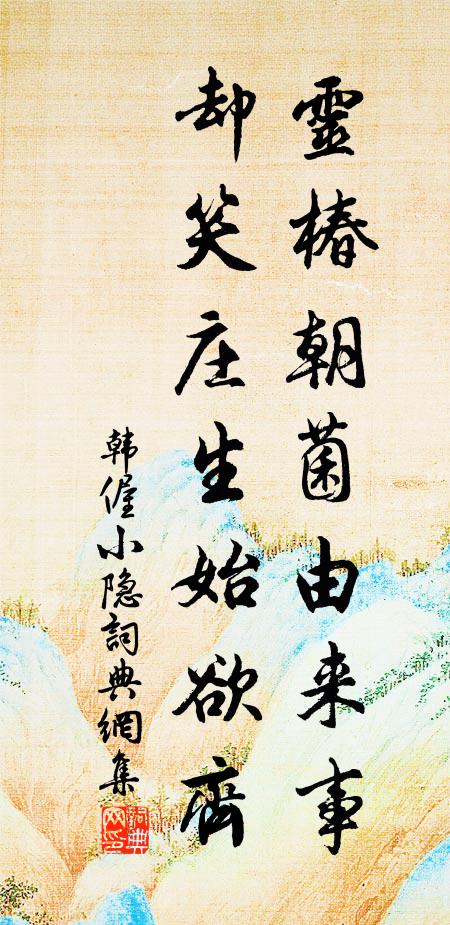 靈椿朝菌由来事
却笑庄生始欲齊
韩偓小隐詞典網集
詞典